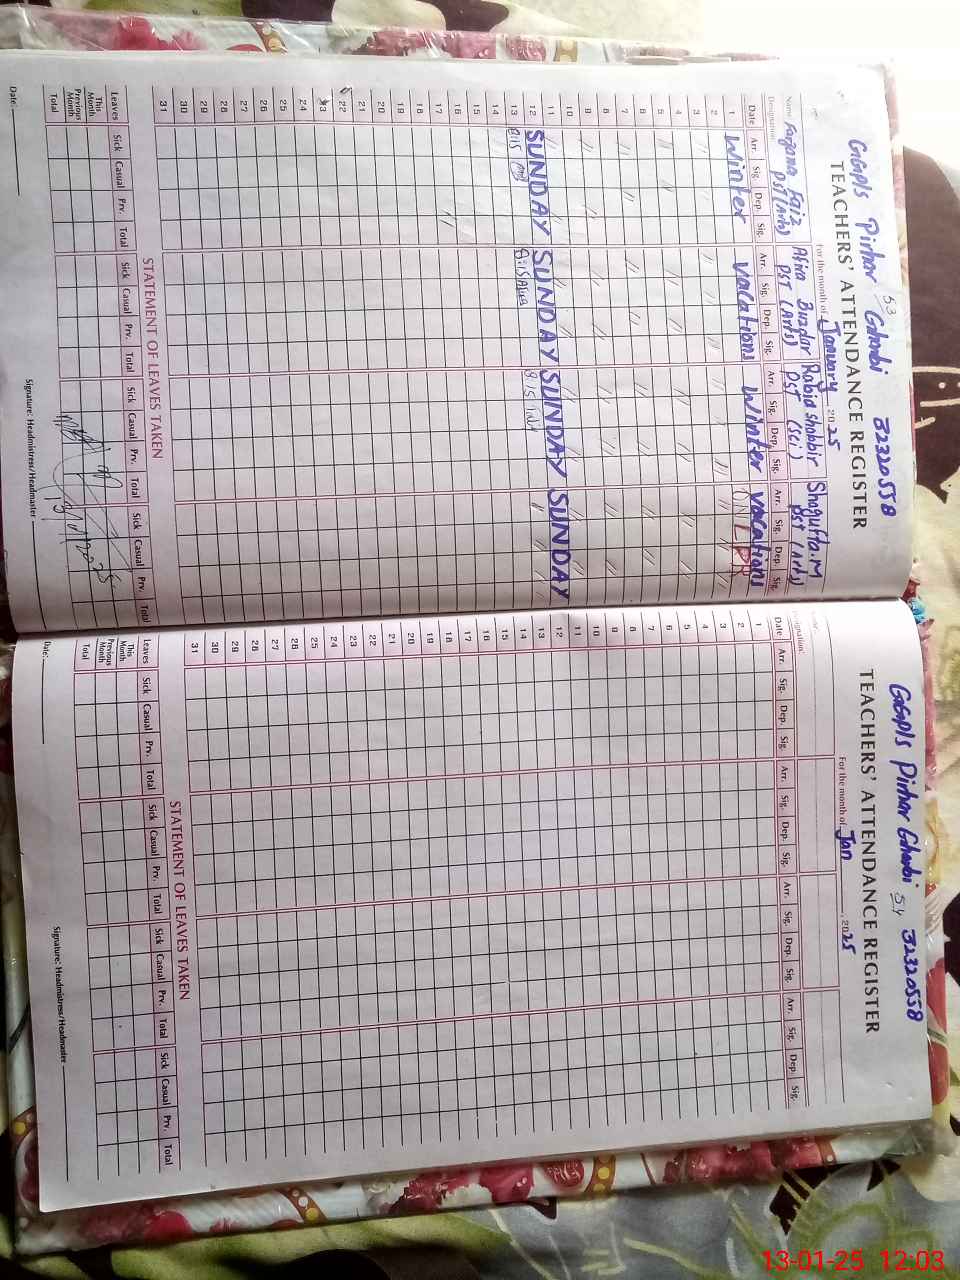 GGPS Pirhar Gharbi 32320558
53
TEACHERS' ATTENDANCE REGISTER
For the month of January 2025
Name Farzana Faiz Afira Buzdar Rabia Shabbir Shagufta.M
Designation: PST (Arts) PST (Arts) PST (Sci) PST (Arts)
Date Arr. Sig. Dep. Sig. Arr. Sig. Dep. Sig. Arr. Sig. Dep. Sig. Arr. Sig. Dep. Sig.
1 Winter vacations Winter vacations
2
3
4
5
6
7
8
9
10
11
12 SUNDAY SUNDAY SUNDAY SUNDAY
13 8:15 8:15 8:15
14
15
16
17
18
19
20
21
22
23
24
25
26
27
28
29
30
31
STATEMENT OF LEAVES TAKEN
Leaves Sick Casual Prv. Total Sick Casual Prv. Total Sick Casual Prv. Total Sick Casual Prv. Total
This Month
Previous Month
Total
Date: Signature: Headmistress/Headmaster
GGPS Pirhar Gharbi 54 32320558
TEACHERS' ATTENDANCE REGISTER
For the month of Jan, 2025
Name:
Designation:
Date Arr. Sig. Dep. Sig. Arr. Sig. Dep. Sig. Arr. Sig. Dep. Sig. Arr. Sig. Dep. Sig.
1
2
3
4
5
6
7
8
9
10
11
12
13
14
15
16
17
18
19
20
21
22
23
24
25
26
27
28
29
30
31
STATEMENT OF LEAVES TAKEN
Leaves Sick Casual Prv. Total Sick Casual Prv. Total Sick Casual Prv. Total Sick Casual Prv. Total
This Month
Previous Month
Total
Date: Signature: Headmistress/Headmaster
13-01-25 12:03